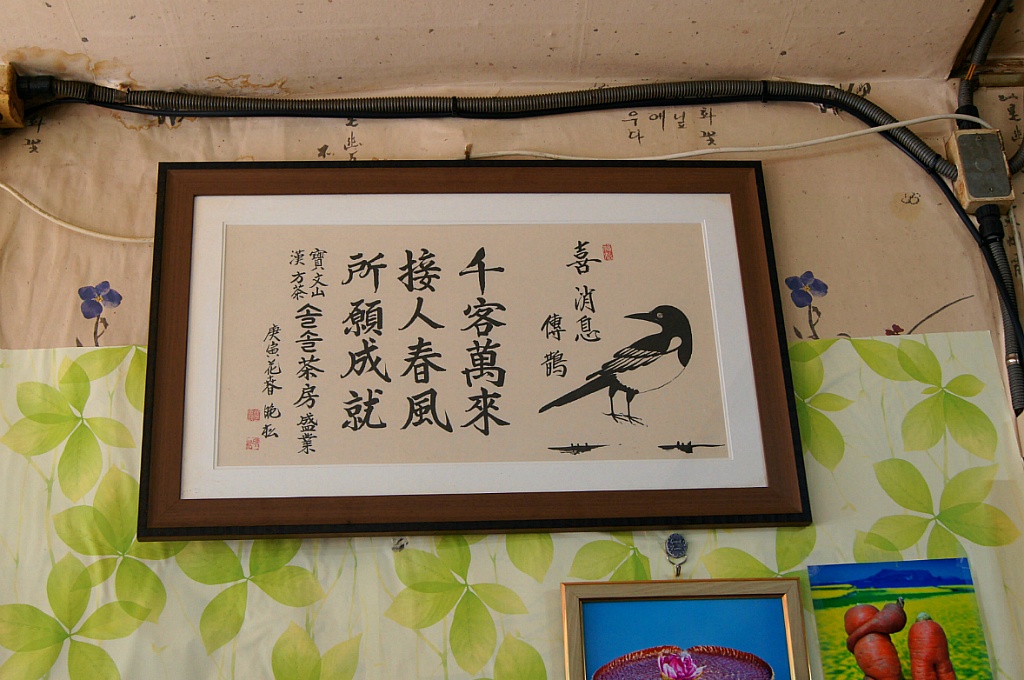 喜消息
傳鵲
千客萬來
接人春風
所願成就
寶文山
漢方茶
솔솔茶房盛業
庚寅花春 晩松